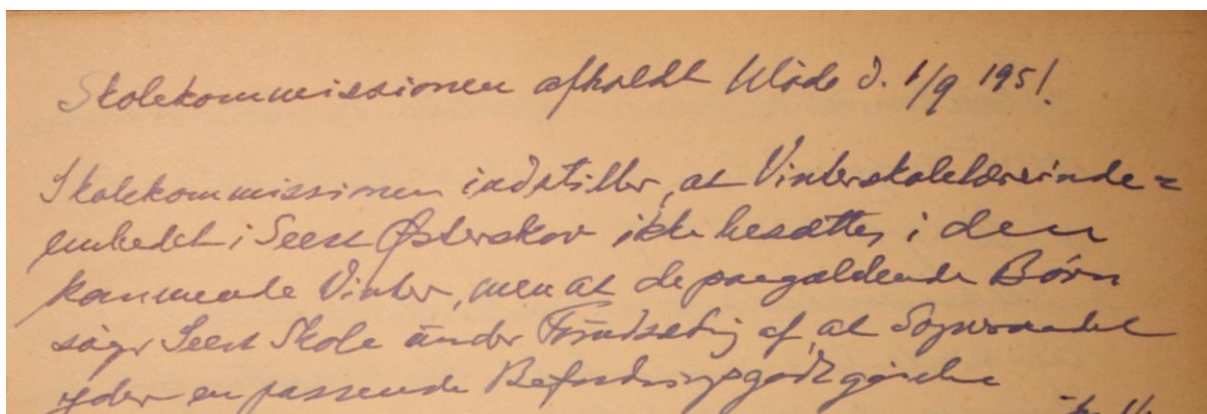 Skolekommissionen afholdt Møde d. 1/9 1951.
Skolekommissionen indstiller, at Vinterskolelærerinde=
embedet i Seest Østerskov ikke besættes i den
kommende Vinter, men at de paagældende Børn
søger Seest Skole under Forudsætning af, at Sogneraadet
yder en passende Befordringsgodtgørelse